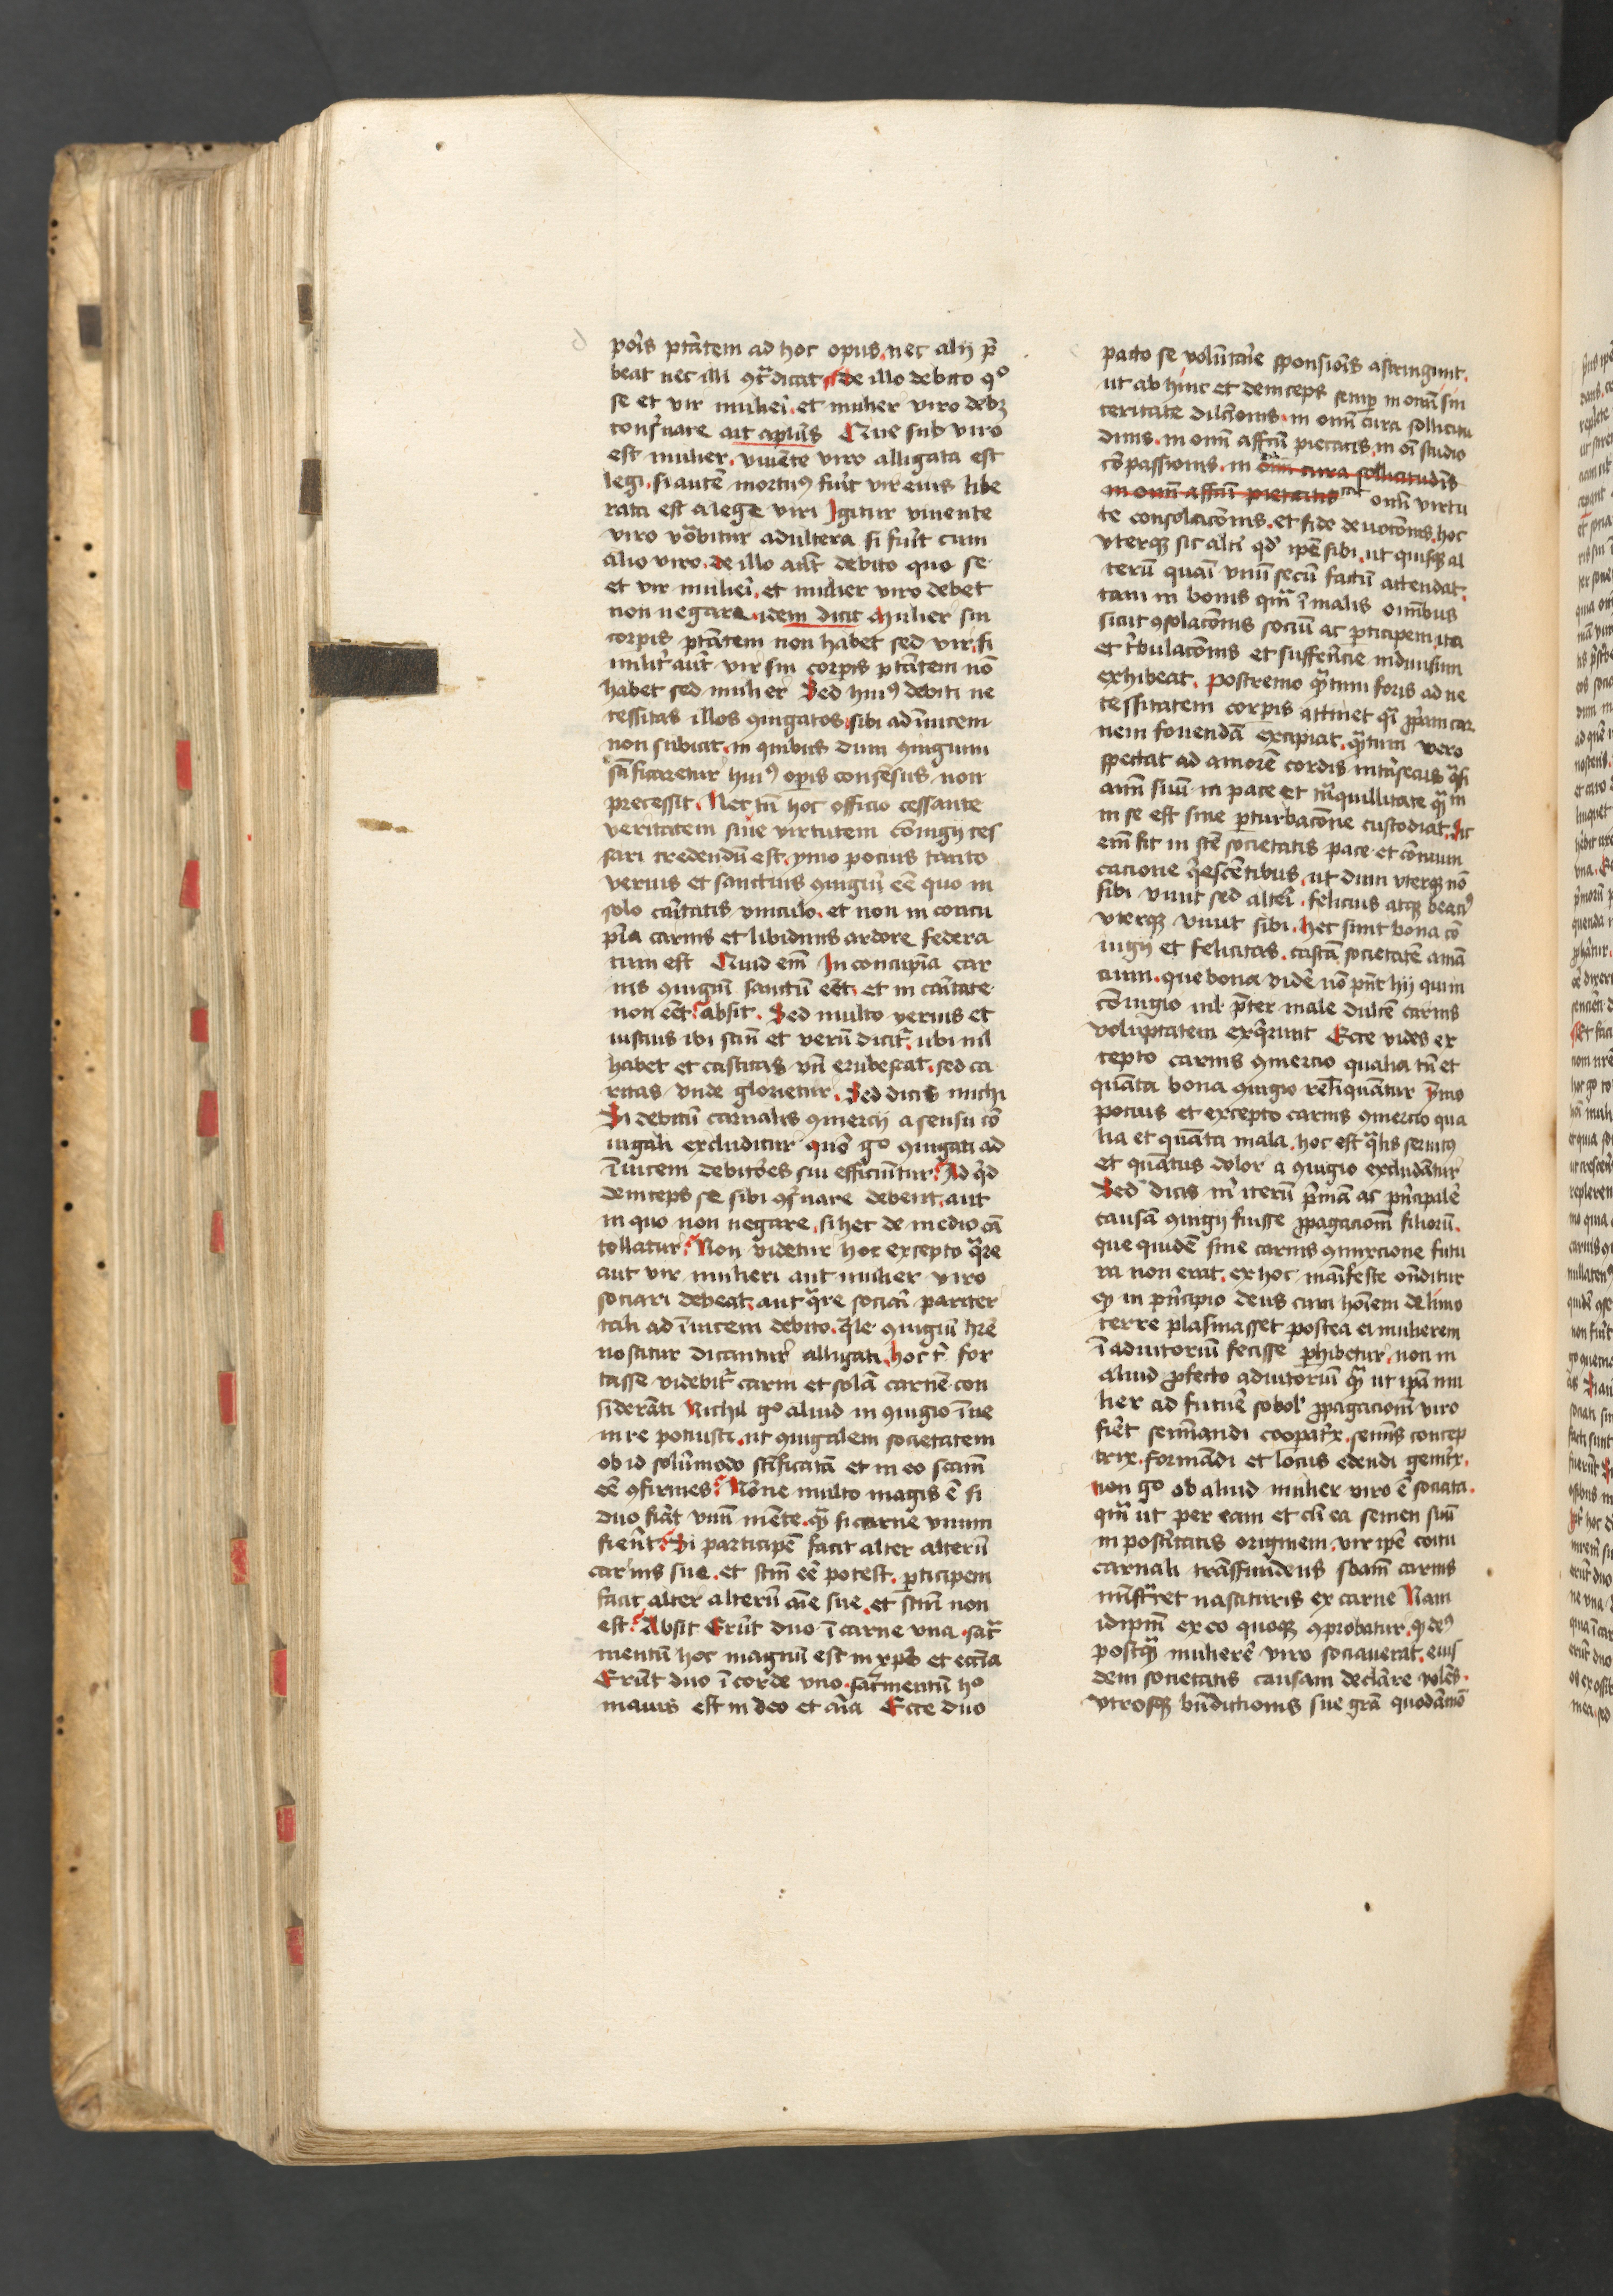 d
poris ptātem ad hoc opus nec alij p̄
beat nec illi ꝯtͣdicat de illo debito qͦ
se et vir mulieri et mulier viro debꝫ
conẜuare ait aplūs Que sub viro
est mulier viuēte viro alligata est
legi si autē mortuꝯ fuīt vir eius libe
rata est a lege viri Igitur viuente
viro vocabitur adultera si fuīt cum
alio viro de illo aūt debito quo se
et vir mulieri et mulier viro debet
non negare idem dicit Mulier sui
corpis ptātem non habet sed vir si
militˀ aūt vir sui corpis ptātem nō
habet sed mulier Sed huiꝯ debiti ne
cessitas illos ꝯiugatos sibi ad īuicem
non subicit in quibus dum ꝯiugium
sc̄ificaretur huiꝯ operis consensus non
precessit Nec tn̄ hoc officio cessante
veritatem siue virtutem coniugij ces
sari credendū est ymo pocius tanto
verius et sanctius ꝯiugiū eē quo in
solo caritatis vinculo et non in concu
pīa carnis et libidinis ardore federa
tum est Quid em̄ In concupīa car
nis ꝯiugiū sanctū eēt et in caritate
non eēt absit Sed multo verius et
iustius ibi scīn et verū dicitˀ ubi nil
habet et castitas vn̄ erubescat sed ca
ritas vnde glorietur Sed dicis michi
Si debitū carnalis ꝯmercij a sensu cō
iugali excluditur quō gͦ ꝯiugati ad
īuicem debitōes sui efficiūtur Ad qͥd
deinceps se sibi ꝯẜuare debent aut
in quo non negare si hec de medio cā
tollatur Non videtur hoc excepto qͣre
aut vir mulieri aut mulier viro
sociari debeat aut qͣre sociati pariter
tali ad īuicem debito qͣle ꝯiugiū hr̄e
noscitur dicantur alligati hoc tͥ for
tasse videbitˀ carni et solā carnē con
siderāti Nichil gͦ aliud in ꝯiugio īue
nire potuisti ut ꝯiugalem societatem
ob id solūmodo sc̄ificatā et in eo scam̄
eē ꝯfirmes Nōne multo magis ē si
duo fiāt vnū mēte qͣꝫ si carne vnum
fierīt Si participē facit alter alterū
carnis sue et scm̄ eē potest pticipem
facit alter alterū aīe sue et scm̄ non
est Absit Erūt duo ī carne vna sacͣ
mentū hoc magnū est in xpō et ecc̄ia
Erūt duo ī corde vno sacͣmentū hͦ
maius est in deo et aīa Ecce duo
pacto se volūtarie sponsionis astringunt
ut ab hinc et deinceps semꝑ in omī sin
ceritate dilcōnis in omī cura sollicitu
dinis in omī affcū pietatis in oī studio
cōpassionis in omī cura sollicitudīs
in omī affcū pietatis in omī virtu
te consolacōnis et fide deuocōnis hoc
vterqꝫ sic altī qd ipē sibi ut quisqꝫ al
terū quasi vnū secū factū attendat
tam in bonis qͣm ī malis omībus
sicut ꝯsolacōnis sociū ac pticipem ita
et tͥbulacōnis et suffēncie indiuisum
exhibeat Postremo qͣtum foris ad ne
cessitatem corpis attinet qͣsi ꝓpͥam car
nem fouendā excipiat qͣtum vero
spectat ad amorē cordis intͥsecus qͣsi
aīm suū in pace et tͣnquillitate qͣꝫtū in
in se est sine perturbacōne custodiat Sic
em̄ fit in scē societatis pace et cōmuni
cacione qͥescētibus ut dum vterqꝫ nō
sibi viuit sed altēi felicius atqꝫ beatiꝯ
vterqꝫ viuit sibi hec sunt bona cō
iugij et felicitas castā societatē amā
cium que bona vidēe nō pnt hij qui in
cōiugio nil pͤter male dulcē carnis
voluptatem exqͥrunt Ecce vides ex
cepto carnis ꝯmercio qualia tn̄ et
quāta bona ꝯiugio relīquātur ymo
pocius et excepto carnis ꝯmercio qua
lia et quāta mala hoc est qͣlis seruitꝯ
et quātus dolor a ꝯiugio excludātur
Sed dicis mͥ iterū pͥmā ac pͥncipalē
causā ꝯiugij fuisse ꝓpagacionē filiorū
que quidē sine carnis ꝯmixcione futu
ra non erat ex hoc māifeste oñditur
qꝫ in pͥncipio deus cum hoīem de limo
terre plasmasset postea ei mulierem
ī adiutoriū fecisse perhibetur non in
aliud ꝓfecto adiutoriū qͣꝫ ut ipā mu
lier ad futurē sobolꝭ ꝓpagacionē viro
fieret semīandi coopatͥx semīs concep
trix formādi et locus edendi genitͥx
non gͦ ob aliud mulier viro ē sociata
qͣm ut per eam et cū ea semen suū
in postͥitatis originem vir ipē coitu
carnali trāsfundens sbam̄ carnis
mīstͣret nascituris ex carne Nam
idipm̄ ex eo quoqꝫ ꝯprobatur qꝫ deꝯ
postqͣꝫ mulierē viro sociauerat eius
dem societatis causam declarāre volēs
vtrosqꝫ bn̄dictionis sue grā quodāmō